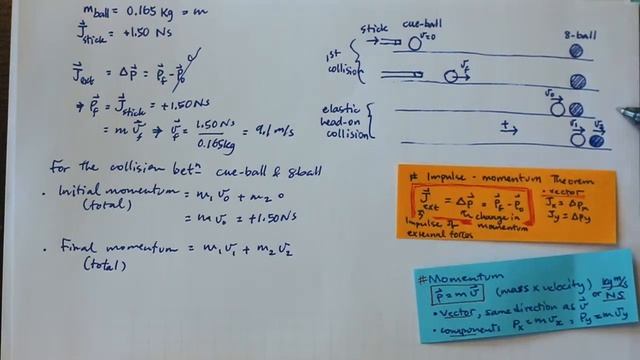 m_ball = 0.165 kg = m
J⃗_stick = +1.50 Ns
J⃗_ext = Δp⃗ = p⃗_f - p⃗_0
⇒ p⃗_f = J⃗_stick = +1.50 Ns
= m v⃗_f ⇒ v⃗_f = 1.50 Ns / 0.165 kg = 9.1 m/s
For the collision betⁿ cue-ball & 8ball
• Initial momentum = m₁ v₀ + m₂ 0
(total)
= m v₀ = +1.50 Ns
• Final momentum = m₁ v₁ + m₂ v₂
(total)
stick cue-ball 8-ball
v=0
1st collision
v_f
elastic head-on collision
v₀
+
v₁ v₂
# Impulse - momentum Theorem
J⃗_ext = Δp⃗ = p⃗_f - p⃗_0
• vector
J_x = Δp_x
J_y = Δp_y
Impulse of external forces
change in momentum
# Momentum
p⃗ = m v⃗ (mass x velocity) kg m/s or NS
• vector, same direction as v⃗
• components p_x = m v_x, p_y = m v_y